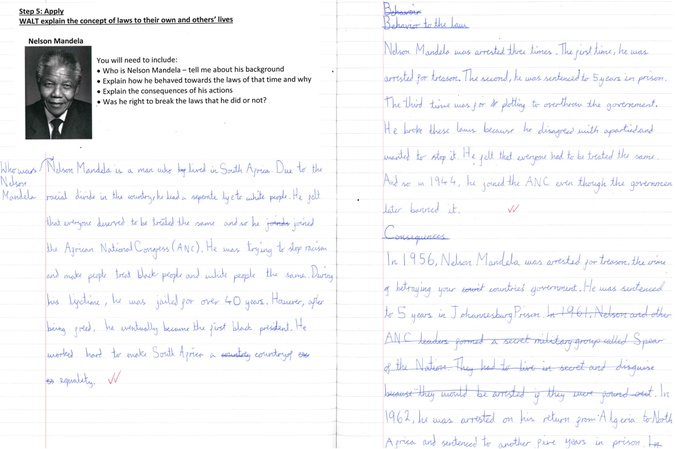 Step 5: Apply
WALT explain the concept of laws to their own and others' lives
Nelson Mandela
You will need to include:
• Who is Nelson Mandela – tell me about his background
• Explain how he behaved towards the laws of that time and why
• Explain the consequences of his actions
• Was he right to break the laws that he did or not?
Who was
Nelson
Mandela
Nelson Mandela is a man who lived in South Africa. Due to the
racial divide in the country, he lead a seperate life to white people. He felt
that everyone deserved to be treated the same and so he joinds joined
the African National Congress (ANC). He was trying to stop racism
and make people treat black people and white people the same. During
his lifetime, he was jailed for over 40 years. However, after
being freed, he eventually became the first black president. He
worked hard to make South Africa a country country of
equality.
Behavior
Behavior to the law
Nelson Mandela was arrested three times. The first time, he was
arrested for treason. The second, he was sentenced to 5 years in prison.
The third time was for plotting to overthrow the government.
He broke these laws because he disagreed with apartied and
wanted to stop it. He felt that everyone had to be treated the same.
And so in 1944, he joined the ANC even though the governmen
later banned it.
Consequences
In 1956, Nelson Mandela was arrested for treason, the crime
of betraying your countries government. He was sentenced
to 5 years in Johannesburg Prison. In 1961, Nelson and other
ANC leaders formed a secret military group called Spear
of the Nation. They had to live in secret and disguise
because they would be arrested if they were found out. In
1962, he was arrested on his return from Algeria to North
Africa and sentenced to another five years in prison.